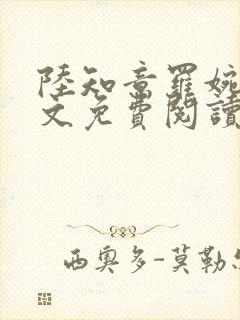 陸知章羅婉
文免費閱讀
西奧多-莫勒怎